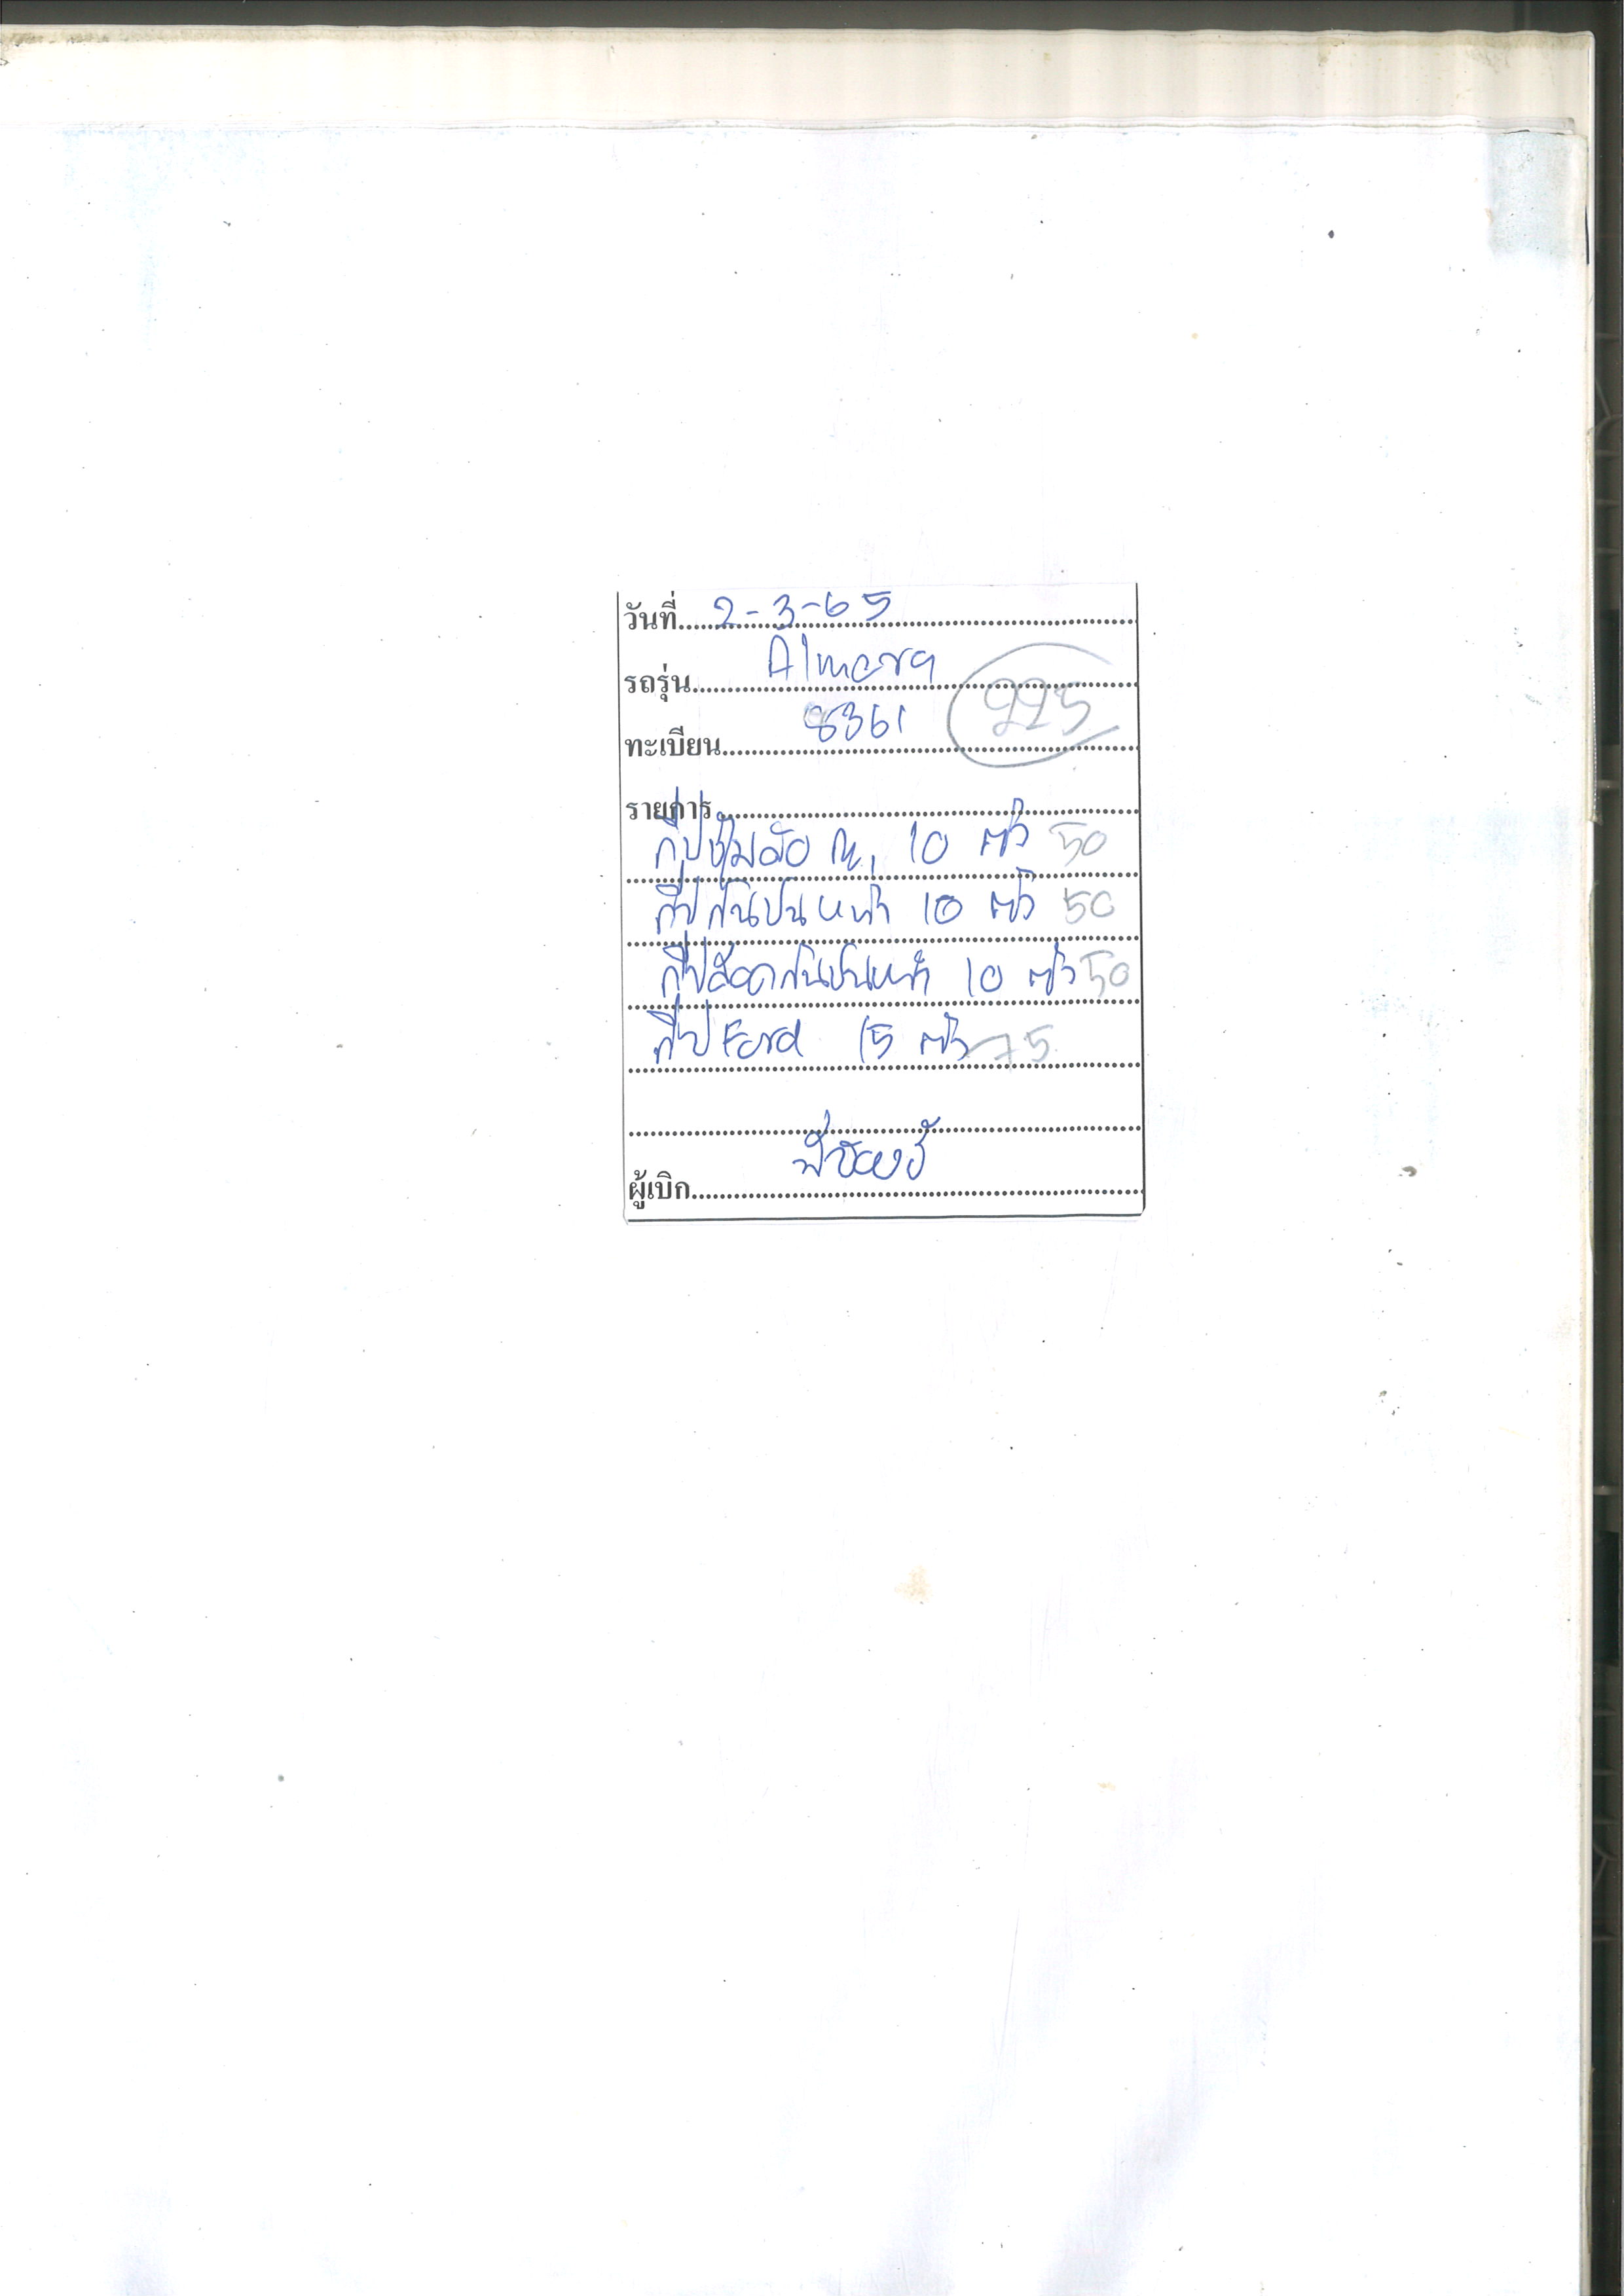 วันที่ 2-3-65
รถรุ่น Almera
225
ทะเบียน 8361
รายการ
กิ๊ปซุ้มล้อ ญ. 10 ตัว 50
กิ๊ปกันชนหน้า 10 ตัว 50
กิ๊ปล๊อคกันชนหน้า 10 ตัว 50
กิ๊ป Ford 15 ตัว 75
ผู้เบิก